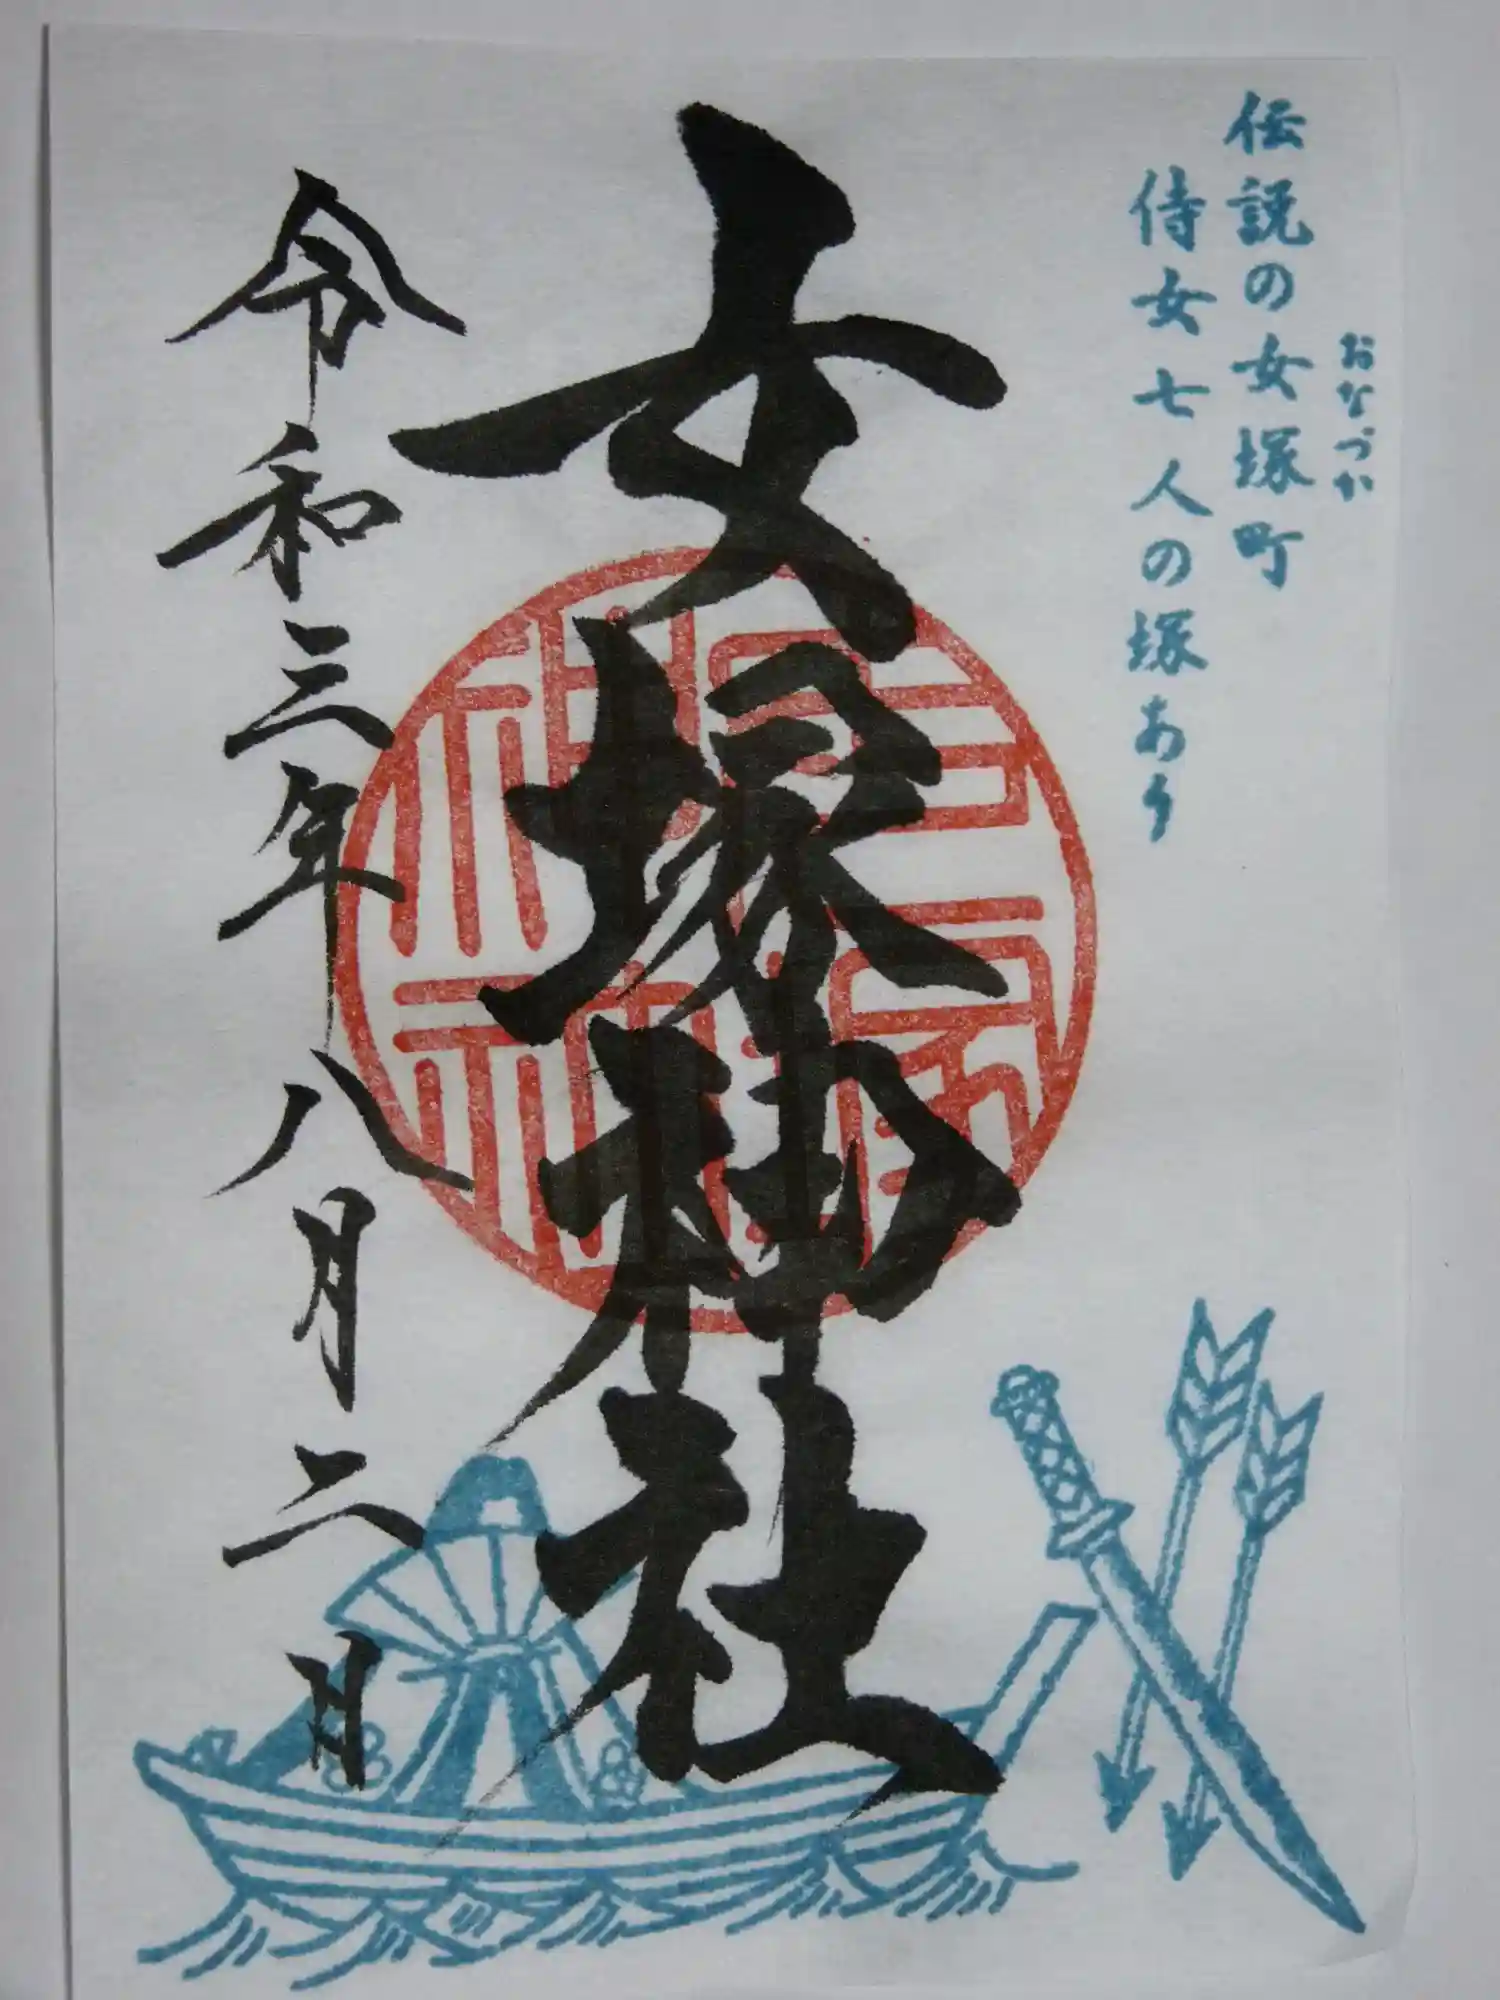 おなづか
伝説の女塚町
侍女七人の塚あり
女塚神社
令和三年八月二日